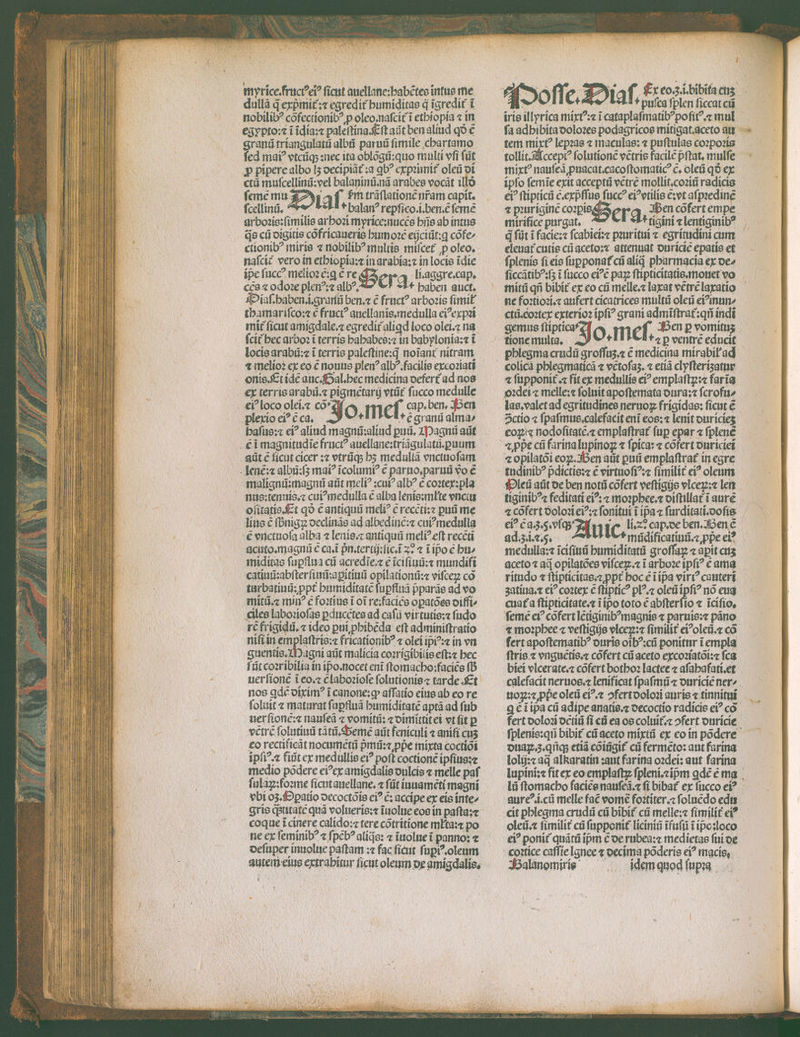 myrice.fruct⁹ei⁹ sicut auellane:habētes intus me
dullā q̄ exp̄mit̄:⁊ egredit̄ humiditas q̄ īgredit̄ ī
nobilib⁹ cōfectionib⁹ ꝓ oleo.nascit̄ ī ethiopia ⁊ in
egypto:⁊ ī īdia:⁊ palestina.Est aūt ben aliud qd̄ ē
granū triangulatū albū paruū simile chartamo
sed mai⁹ vtcūqꝫ:nec ita oblōgū:quo multi vsi sūt
ꝓ pipere albo lꝫ decipiāt̄:a qb⁹ exp̄mit̄ oleū di
ctū muscellinū:vel balaninū.nā arabes vocāt illd̄
semē mu Dias. ẜm trāslationē nr̄am capit.
scellinū. balan⁹ repsico.i.ben.ē semē
arboris:similis arbori myrice:nuces hn̄s ab intus
q̄s cū digitis cōfricaueris humorē eijciūt:q cōfe-
ctionib⁹ miris ⁊ nobilib⁹ multis miscet̄ ꝓ oleo.
nascit̄ vero in ethiopia:⁊ in arabia:⁊ in locis īdie
ipe succ⁹ melior ē:q ē re Sera. li.aggre.cap.
cēs ⁊ odore plen⁹:⁊ alb⁹. haben auct.
Dias.haben.i.granū ben.⁊ ē fruct⁹ arboris simil̄
thamarisco:⁊ ē fruct⁹ auellanis.medulla ei⁹expri
mit̄ sicut amigdale.⁊ egredit̄ aliqd loco olei.⁊ na
scit̄ hec arbor ī terris hahabes:⁊ in babylonia:⁊ ī
locis arabū:⁊ ī terris palestine:q̄ noiant̄ nitram
⁊ melior ex eo ē nouus plen⁹ alb⁹.facilis excoriati
onis.Et idē auc.Gal.hec medicina defert̄ ad nos
ex terris arabū.⁊ pigmētarij vtūt̄ succo medulle
ei⁹ loco olei.⁊ cō Jo.mes. cap.ben. Ben
plexio ei⁹ ē ca. ē granū alma-
hasus:⁊ ei⁹ aliud magnū:aliud puū. Magnū aūt
ē ī magnitudīe fruct⁹ auellane:triāgulatū.puum
aūt ē sicut cicer :⁊ vtrūqꝫ hꝫ medullā vnctuosam
lenē:⁊ albū:sꝫ mai⁹ īcolumi⁹ ē paruo.paruū v̊o ē
malignū:magnū aūt meli⁹ :cui⁹ alb⁹ ē cortex:pla
nus:tenuis.⁊ cui⁹medulla ē alba lenis:ml̄te vnctu
ositatis.Et qd̄ ē antiquū meli⁹ ē recēti:⁊ puū me
lius ē ſbnigꝝ declinās ad albedinē:⁊ cui⁹medulla
ē vnctuosa alba ⁊ lenis.⁊ antiquū meli⁹ est recēti
acuto.magnū ē ca.ī p̄n.tertij:sic.ī 2⁰ ⁊ ī ip̄o ē hu-
miditas supflua cū acredīe.⁊ ē īcisiuū:⁊ mundifi
catiuū:abstersiuū:apitiuū opilationū:⁊ visceꝝ cō
turbatiuū:ꝓpt̄ humiditatē supfluā p̄parās ad vo
mitū.⁊ min⁹ ē fortius ī oī re:faciēs oꝑatōes diffi-
ciles laboriosas ꝓducētes ad casū virtutis:⁊ sudo
rē frigidū.⁊ ideo pui ꝓhibēda est administratio
nisi in emplastris:⁊ fricationib⁹ ⁊ olei ip̄i⁹:⁊ in vn
guentis.Magni aūt malicia corrigibilis est:⁊ hec
sūt corribilia in ip̄o.nocet eni stomacho:faciēs sb̄
uersionē ī eo.⁊ ē laboriose solutionis ⁊ tarde .Et
nos qdē dixim⁹ ī canone:q assatio eius ab eo re
soluit ⁊ maturat supfluā humiditatē aptā ad sub
uersionē:⁊ nauseā ⁊ vomitū: ⁊ dimittit ei vt sit p
vētrē solutiuū tātū.Semē aūt feniculi ⁊ anisi cuꝫ
eo rectificāt nocumētū p̄mū:⁊ ꝓpe mixta coctiōi
ip̄si⁹.⁊ siūt ex medullis ei⁹ post coctionē ip̄sius:⁊
medio pōdere ei⁹ex amigdalis dulcis ⁊ melle pas
sulaꝝ:forme sicut auellane. ⁊ sūt iuuamēti magni
vbi oꝫ.Opatio decoctōis ei⁹ ē: accipe ex eis inte-
gris q̄titatē quā volueris:⁊ īuolue eos in pasta:⁊
coque ī cinere calido:⁊ tere cōtritione ml̄ta:⁊ po
ne ex seminib⁹ ⁊ spēb⁹ aliq̄s: ⁊ īuolue ī panno: ⁊
desuper inuolue pastam :⁊ fac sicut supi⁹.oleum
autem eius extrahitur sicut oleum de amigdalis.
Posse. Dias. Ex eo.ʒ.i.bibita cuꝫ
pusca splen siccat cū
iris illyrica mixt⁹:⁊ ī cataplasmatib⁹posit⁹.⁊ mul
sa adhibita dolores podagricos mitigat.aceto au
tem mixt⁹ lepras ⁊ maculas: ⁊ pustulas corporis
tollit.Accept⁹ solutionē vētris facilē p̄stat. mulse
mixt⁹ nauseā ꝓuocat.cacostomatic⁹ ē. oleū qd̄ ex
ipso semīe exit acceptū vētrē mollit.coriū radicis
ei⁹ stipticū ē.exp̄ssus succ⁹ ei⁹vtilis ē:vt aspredinē
⁊ pruriginē corpis Sera. Ben cōfert empe
mirifice purgat. tigini ⁊ lentiginib⁹
q̄ sūt ī facie:⁊ scabiei:⁊ pruritui ⁊ egritudini cum
eleuat̄ cutis cū aceto:⁊ attenuat duriciē epatis et
splenis si eis supponat̄ cū aliq̄ pharmacia ex de-
siccātib⁹:sꝫ ī succo ei⁹ē paꝝ stipticitatis.mouet vo
mitū qn̄ bibit̄ ex eo cū melle.⁊ laxat vētrē laxatio
ne fortiori.⁊ aufert cicatrices multū oleū ei⁹inun-
ctū.cortex exterior ip̄si⁹ grani admīstrat̄:qn̄ indi
gemus stiptica Jo.mes. Ben p vomituꝫ
tione multa. ⁊ p ventrē educit
phlegma crudū grossuꝫ.⁊ ē medicina mirabil̄ ad
colicā phlegmaticā ⁊ vētosaꝫ. ⁊ etiā clysterizatur
⁊ supponit̄.⁊ fit ex medullis ei⁹ emplastꝝ:⁊ farīa
ordei ⁊ melle:⁊ soluit apostemata dura:⁊ scrofu-
las.valet ad egritudines neruoꝝ frigidas: sicut ē
ꝯctio ⁊ spasmus.calefacit eni eos:⁊ lenit duricieꝫ
eoꝝ:⁊ nodositatē.⁊ emplastrat̄ sup epar ⁊ splenē
⁊ ꝓpe cū farina lupinoꝝ ⁊ spica: ⁊ cōfert duriciei
⁊ opilatōi eoꝝ.Ben aūt puū emplastrat̄ in egre
tudinib⁹ p̄dictis:⁊ ē virtuosi⁹:⁊ similit̄ ei⁹ oleum
Oleū aūt de ben notū cōfert vestigijs vlceꝝ:⁊ len
tiginib⁹⁊ feditati ei⁹: ⁊ morphee.⁊ distillat̄ ī aurē
⁊ cōfert dolori ei⁹:⁊ sonitui ī ip̄a ⁊ surditati.dosis
ei⁹ ē a.ʒ.5.vsqꝫ Auic. li.2⁰ cap.de ben.Ben ē
ad.ʒ.i.⁊.5. mūdificatiuū.⁊ ꝓpe ei⁹
medulla:⁊ īcisiuū humiditatū grossaꝝ ⁊ apit cuꝫ
aceto ⁊ aq̄ opilatōes visceꝝ.⁊ ī arbore ip̄si⁹ ē ama
ritudo ⁊ stipticitas.⁊ ꝓpt̄ hoc ē ī ip̄a virt⁹ cauteri
zatiua.⁊ ei⁹ cortex ē stiptic⁹ pl⁹.⁊ oleū ip̄si⁹ nō eua
cuat̄ a stipticitate.⁊ ī ip̄o toto ē abstersio ⁊ īcisio.
semē ei⁹ cōfert lētiginib⁹magnis ⁊ paruis:⁊ pāno
⁊ morphee ⁊ vestigijs vlceꝝ:⁊ similit̄ ei⁹ oleū.⁊ cō
fert apostematib⁹ duris oib⁹:cū ponitur ī empla
stris ⁊ vnguētis.⁊ cōfert cū aceto excoriatōi:⁊ sca
biei vlcerate.⁊ cōfert bothor lactee ⁊ asahafati.et
calefacit neruos.⁊ lenificat spasmū ⁊ duriciē ner-
uoꝝ:⁊ ꝓpe oleū ei⁹.⁊ ꝯfert dolori auris ⁊ tinnitui
q ē ī ipa cū adipe anatis.⁊ decoctio radicis ei⁹ cō
fert dolori dētiū si cū ea os coluit̄.⁊ ꝯfert duricie
splenis:qn̄ bibit̄ cū aceto mixtū ex eo in pōdere
duaꝝ.ʒ.qn̄qꝫ etiā cōiūgit̄ cū fermēto: aut farina
lolij:⁊ aq̄ alkaratin :aut farina ordei: aut farina
lupini:⁊ fit ex eo emplastꝝ spleni.⁊ ip̄m qdē ē ma
lū stomacho faciēs nauseā.⁊ si bibat̄ ex succo ei⁹
aure⁹.i.cū melle fac̄ vomē fortiter.⁊ soluēdo edu
cit phlegma crudū cū bibit̄ cū melle:⁊ similit̄ ei⁹
oleū.⁊ similit̄ cū supponit̄ liciniū īfusū ī ip̄o:loco
ei⁹ ponit̄ quātū ip̄m ē de rubea:⁊ medietas sui de
cortice cassie lgnee ⁊ decima pōderis ei⁹ macis.
Balanomiris idem quod supra